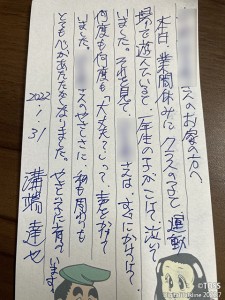 さんのお家の方へ
本日、業間休みにクラスの子と運動
場で遊んでいると、一年生の子がこけて泣いて
いました。それを見て、さんは、すぐにかけよって
何度も何度も「大丈夫?」って、声をかけて
いました。さんのやさしさに、私も周りも
とても心があたたかくなりました。やさしい子に育っています。
2022.1.31 溝端 達也
©TBS